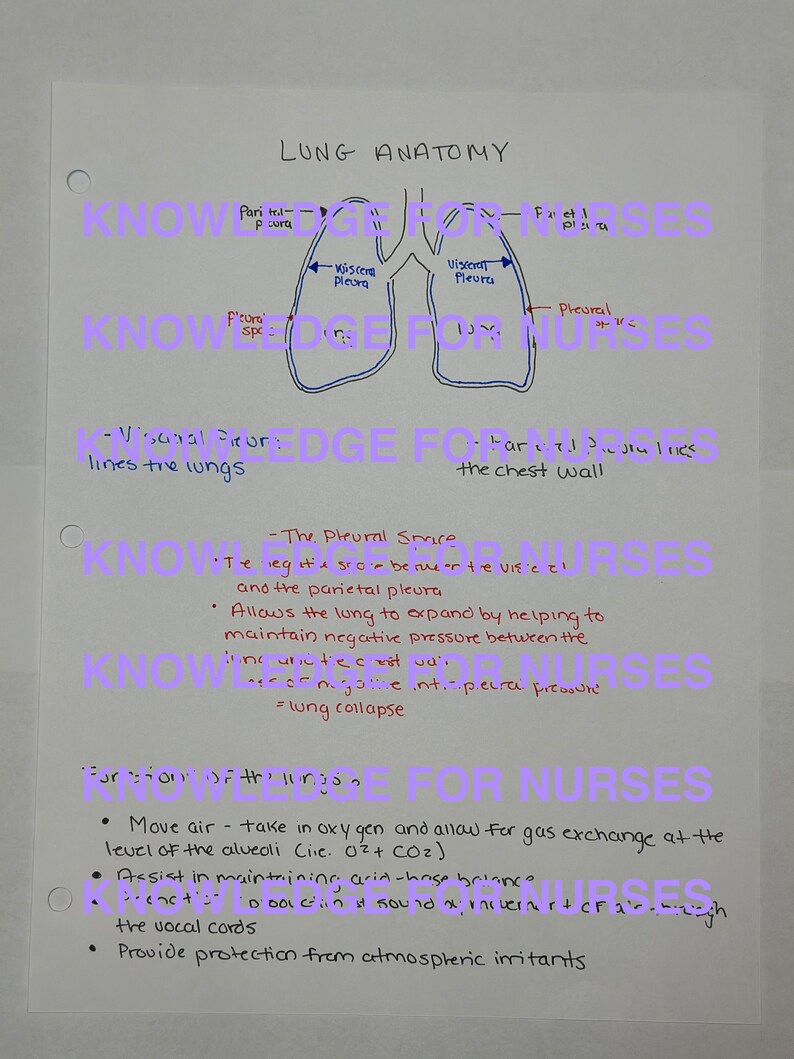 LUNG ANATOMY
KNOWLEDGE FOR NURSES
Parietal
pleura
Parietal
pleura
Visceral
pleura
Visceral
Pleura
KNOWLEDGE FOR NURSES
Pleural
space
Pleural
space
lung
lung
KNOWLEDGE FOR NURSES
- Visceral Pleura
lines the lungs
- Parietal Pleura lines
the chest wall
KNOWLEDGE FOR NURSES
- The Pleural Space
• The negative space between the visceral
and the parietal pleura
• Allows the lung to expand by helping to
maintain negative pressure between the
lung and the chest wall
KNOWLEDGE FOR NURSES
of negative pleural pressure
= lung collapse
Functions of the lungs
KNOWLEDGE FOR NURSES
• Move air - take in oxygen and allow for gas exchange at the
level of the alveoli (i.e. O2 + CO2)
• Assist in maintaining acid-base balance
KNOWLEDGE FOR NURSES
production of sound by movement of air through
the vocal cords
• Provide protection from atmospheric irritants